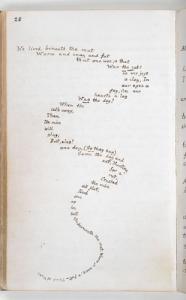 28
We lived beneath the mat
Warm and snug and fat
But one woe, & that
Was the cat!
To our joys
a clog, In
our eyes a
fog, On our
hearts a log
Was the dog!
When the
cat's away,
Then
the mice
will
play,
But, alas!
one day, (So they say)
Came the dog and
cat, Hunting
for a
rat,
Crushed
the mice
all flat,
Each
one
as
he
sat
Underneath the mat, Warm, & snug, & fat, Think of that!